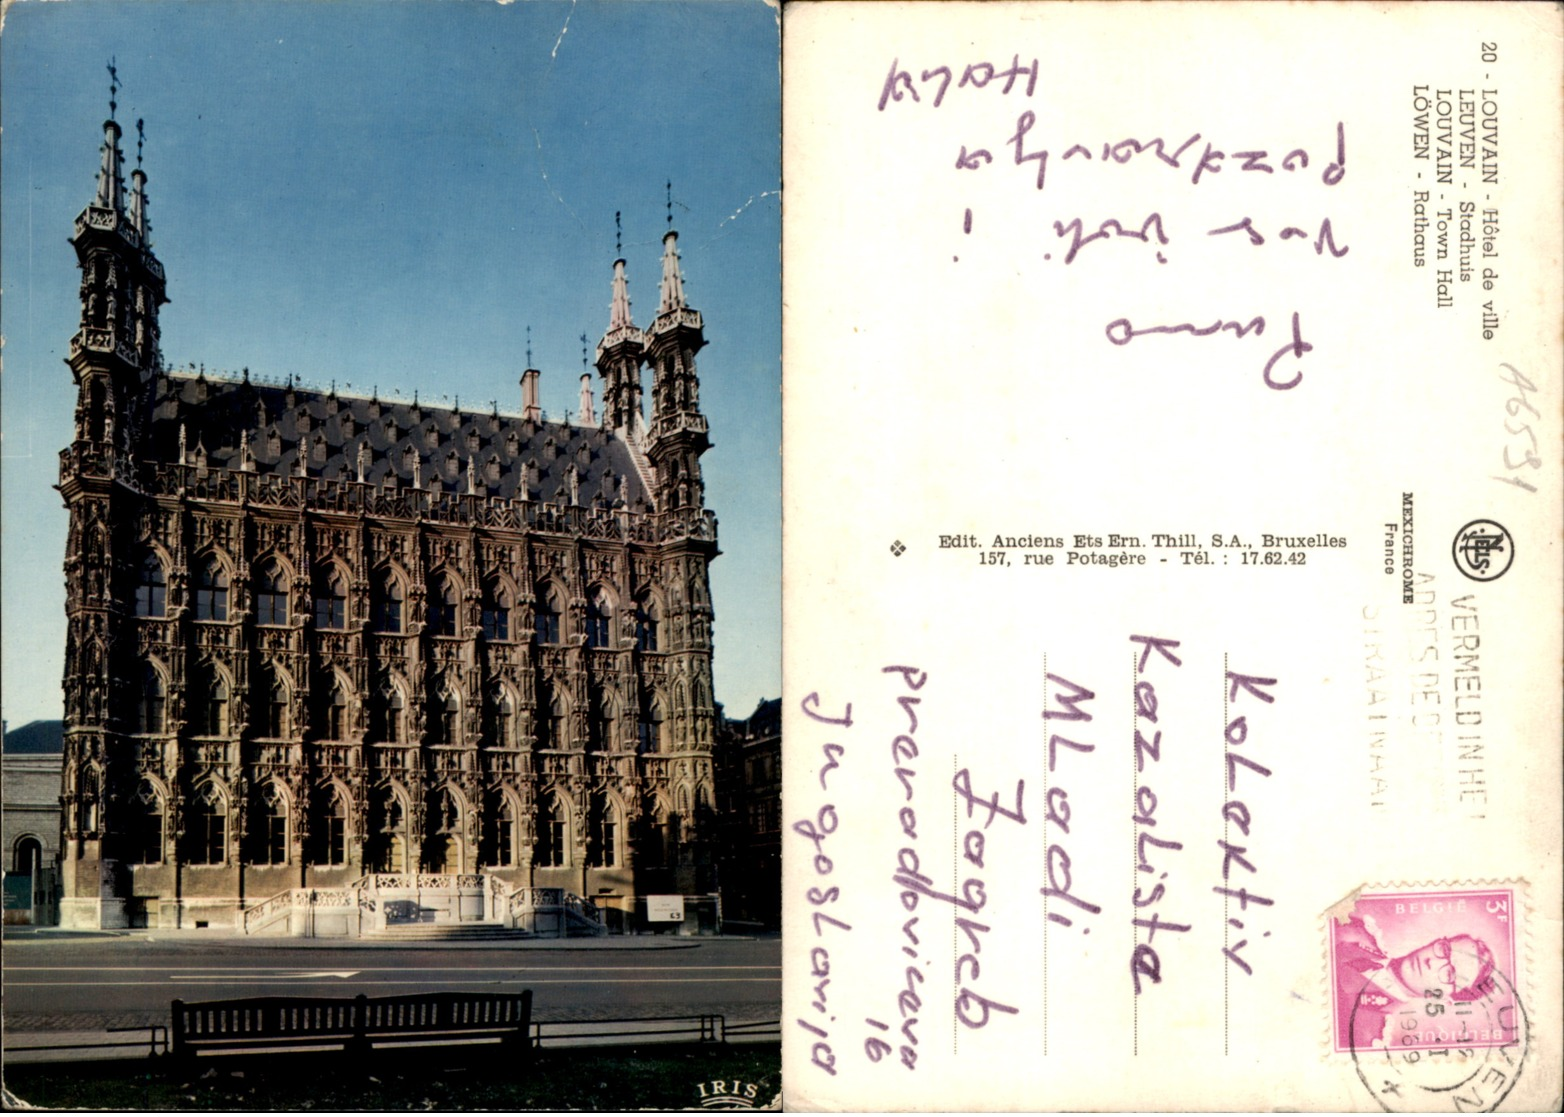 IRIS
63
20 - LOUVAIN - Hôtel de ville
LEUVEN - Stadhuis
LOUVAIN - Town Hall
LÖWEN - Rathaus
A6591
Puno
vas voli i
pozdravlja
Edit. Anciens Ets Ern. Thill, S.A., Bruxelles
157, rue Potagère - Tél. : 17.62.42
NELS
MEXICHROME
France
VERMELD IN HE
STRAATNAAM
BELGIË
3F
BELGIQUE
LEUVEN
25 -I
1969
KOLEKtiv
KazaLista
MLadi
Zagreb
preradovićeva
16
JugosLavija